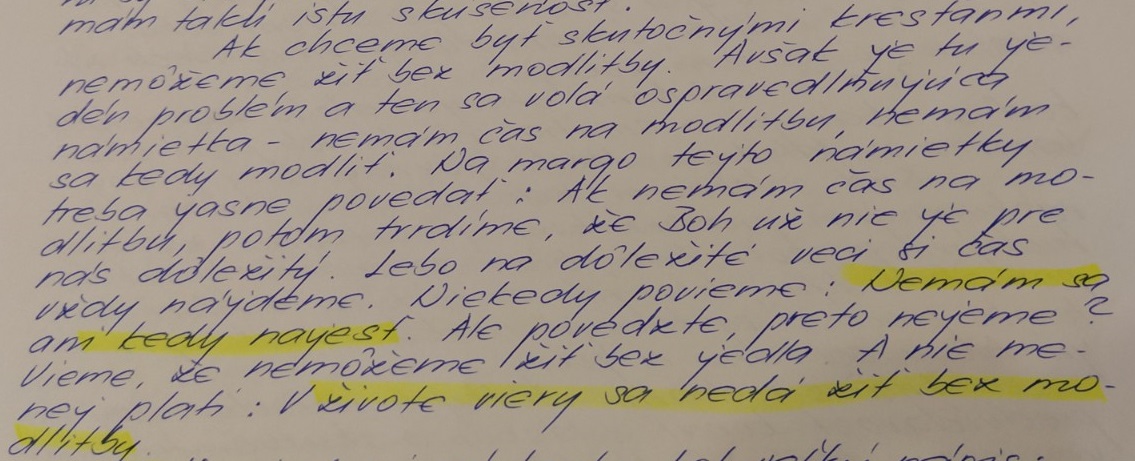 mám takú istú skúsenosť.
Ak chceme byť skutočnými kresťanmi,
nemôžeme žiť bez modlitby. Avšak je tu je-
den problém a ten sa volá ospravedlňujúca
námietka - nemám čas na modlitbu, nemám
sa kedy modliť. Na margo tejto námietky
treba jasne povedať: Ak nemám čas na mo-
dlitbu, potom tvrdíme, že Boh už nie je pre
nás dôležitý. Lebo na dôležité veci si čas
vždy nájdeme. Niekedy povieme: Nemám sa
ani kedy najesť. Ale povedzte, preto nejeme?
Vieme, že nemôžeme žiť bez jedla. A nie me-
nej platí: V živote viery sa nedá žiť bez mo-
dlitby.